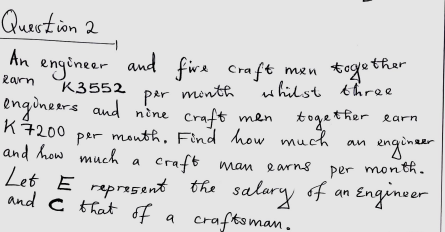 Question 2
An engineer and five craft men together
earn K3552 per month whilst three
engineers and nine craft men together earn
K7200 per month. Find how much an engineer
and how much a craft man earns per month.
Let E represent the salary of an Engineer
and C that of a craftsman.